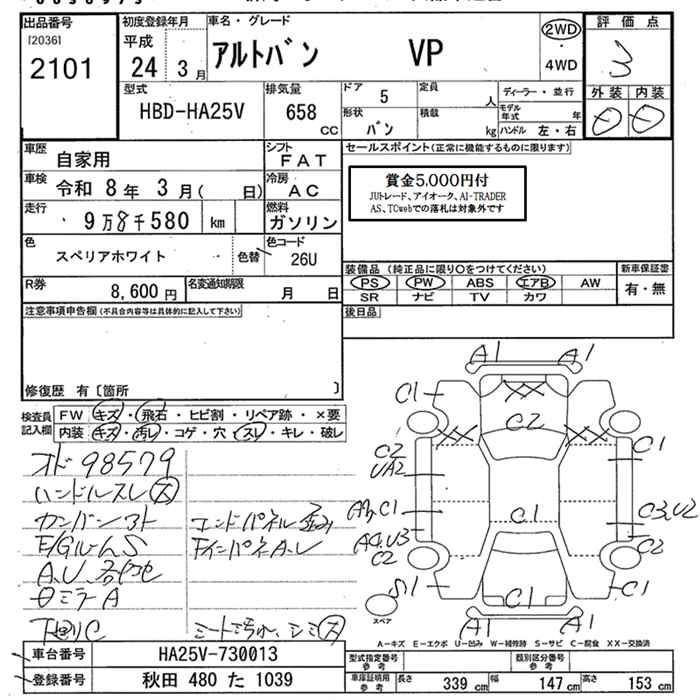 出品番号
[2036]
2101
初度登録年月
平成
24 3月
車名・グレード
アルトバン VP
2WD
・
4WD
評価点
3
外装 内装
型式
HBD-HA25V
排気量
658
CC
ドア 5
形状 バン
定員 人
積載 kg
ディーラー・並行
モデル年式 年
ハンドル 左・右
車歴 自家用
シフト FAT
車検 令和 8年 3月( 日)
冷房 AC
走行 9万8千580 km
燃料 ガソリン
色 スペリアホワイト 色替
色コード 26U
R券 8,600円
名変通知期限 月 日
セールスポイント(正常に機能するものに限ります)
賞金5,000円付
JUトレード、アイオーク、AI-TRADER
AS、TCwebでの落札は対象外です
装備品(純正品に限り〇をつけてください)
新車保証書
PS PW ABS エアB AW
有・無
SR ナビ TV カワ
後日品
注意事項申告欄(不具合内容等は具体的に記入して下さい)
修復歴 有〔箇所 〕
検査員
記入欄
FW キズ・飛石・ヒビ割・リペア跡・×要
内装 キズ・汚レ・コゲ・穴・スレ・キレ・破レ
オド98579
ハンドルスレ
カンバンアト
エンドパネル歪み
E/GルームS
FインパネA.U
A.U
ミラーA
下回りC
シートよごれ、シミ
A1 A1
C1
C2
C2
UA2
C1
A3,C1
C1
C3,U2
A4,U3
C2
C2
S1
C1
C1
A1 A1
スペア
A-キズ E-エクボ U-凹み W-補修跡 S-サビ C-腐食 XX-交換済
車台番号 HA25V-730013
登録番号 秋田 480 た 1039
型式指定番号
参考
類別区分番号
参考
車庫証明用
参考
長さ 339 cm
幅 147 cm
高さ 153 cm